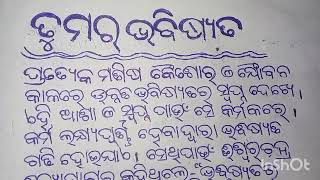 ତୁମର ଭବିଷ୍ୟତ
ପ୍ରତ୍ୟେକ ମଣିଷ କୈଶୋର ଓ ଯୌବନ
କାଳରେ ଉନ୍ନତ ଭବିଷ୍ୟତର ସ୍ୱପ୍ନ ଦେଖେ।
ଆଶା ଓ ସ୍ୱପ୍ନ ପାଇଁ ସେ କର୍ମ କରେ।
କର୍ମ ହେବାଦ୍ୱାରା ଭବିଷ୍ୟତ
ଗଢି ହୋଇଯାଏ। ସେଥିପାଇଁ ଈଶ୍ୱରଚନ୍ଦ୍ର
କହିଥିଲେ- "ଭବିଷ୍ୟତର
InShot